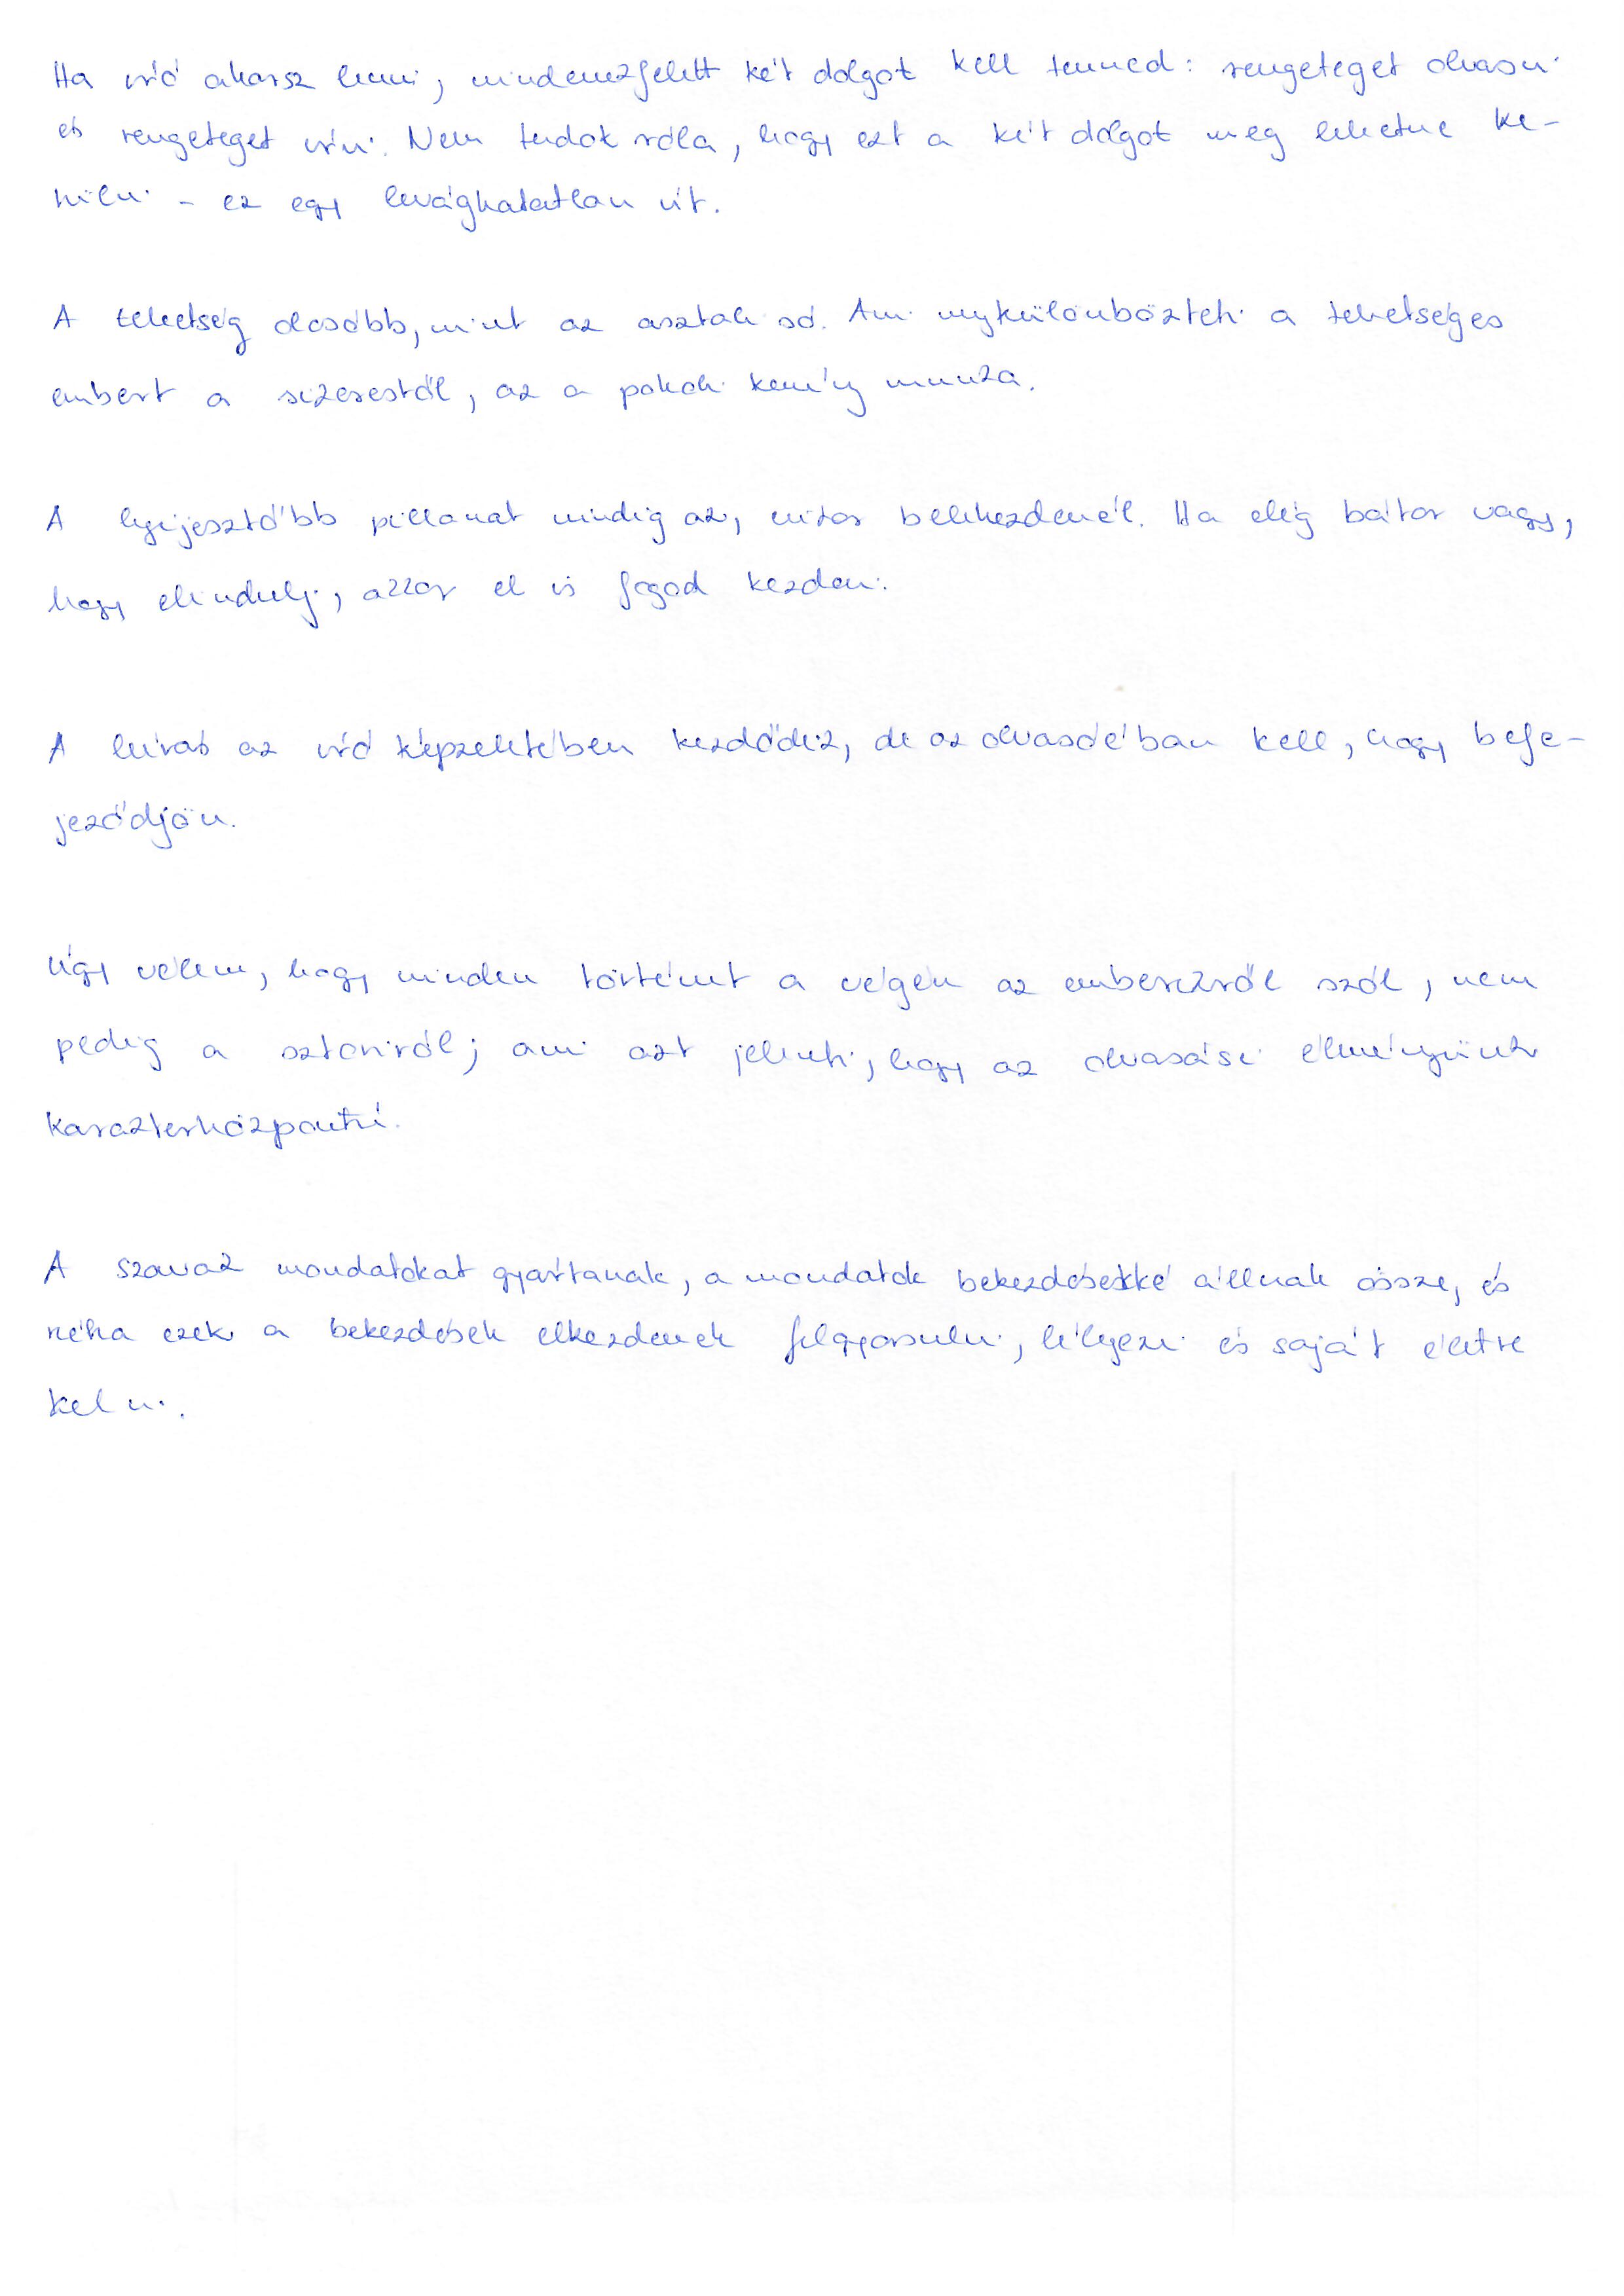 Ha író akarsz lenni, mindenekfelett két dolgot kell tenned: rengeteget olvasni
és rengeteget írni. Nem tudok róla, hogy ezt a két dolgot meg lehetne ke-
rülni - ez egy levághatatlan út.
A tehetség olcsóbb, mint az asztali só. Ami megkülönbözteti a tehetséges
embert a sikerestől, az a pokoli kemény munka.
A legijesztőbb pillanat mindig az, mikor belekezdenél. Ha elég bátor vagy,
hogy elindulj, akkor el is fogod kezdeni.
A leírás az író képzeletében kezdődik, de az olvasóéban kell, hogy befe-
jeződjön.
Úgy vélem, hogy minden történet a végén az emberekről szól, nem
pedig a sztoriról; ami azt jelenti, hogy az olvasási élményünk
karakterközpontú.
A szavak mondatokat gyártanak, a mondatok bekezdésekké állnak össze, és
néha ezek a bekezdések elkezdenek felgyorsulni, lélegezni és saját életre
kelni.